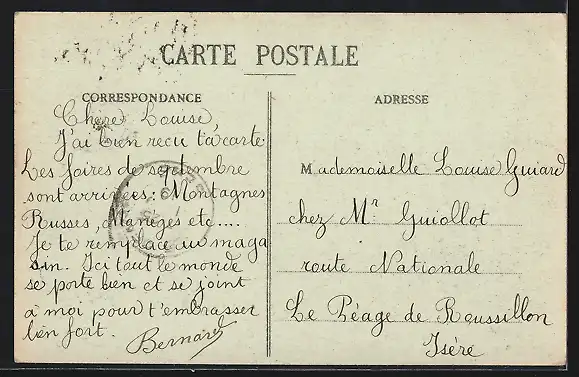 CARTE POSTALE
CORRESPONDANCE
Chère Louise,
J'ai bien recu ta carte
Les foires de septembre
sont arrivées : Montagnes
Russes, Manèges etc....
Je te remplace au maga
sin. Ici tout le monde
se porte bien et se joint
à moi pour t'embrasser
bien fort.
Bernard
ADRESSE
Mademoiselle Louise Guiard
chez Mr Guiollot
route Nationale
Le Péage de Roussillon
Isère